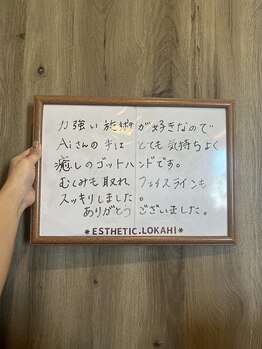 力強い施術が好きなので
Aiさんの手はとても気持ちよく
癒しのゴットハンドです。
むくみも取れ、フェイスラインも
スッキリしました。
ありがとうございました。
*ESTHETIC.LOKAHI*